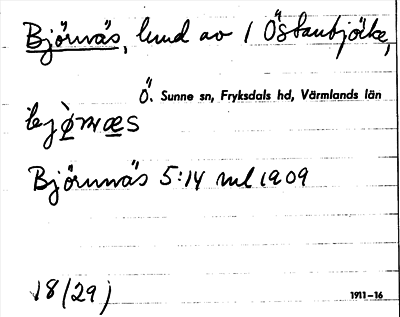 Björnäs, hmd av 1 Östanbjörke,
Ö. Sunne sn, Fryksdals hd, Värmlands län
Björnnäs 5:14 ml 1909
18 (29)
1911–16